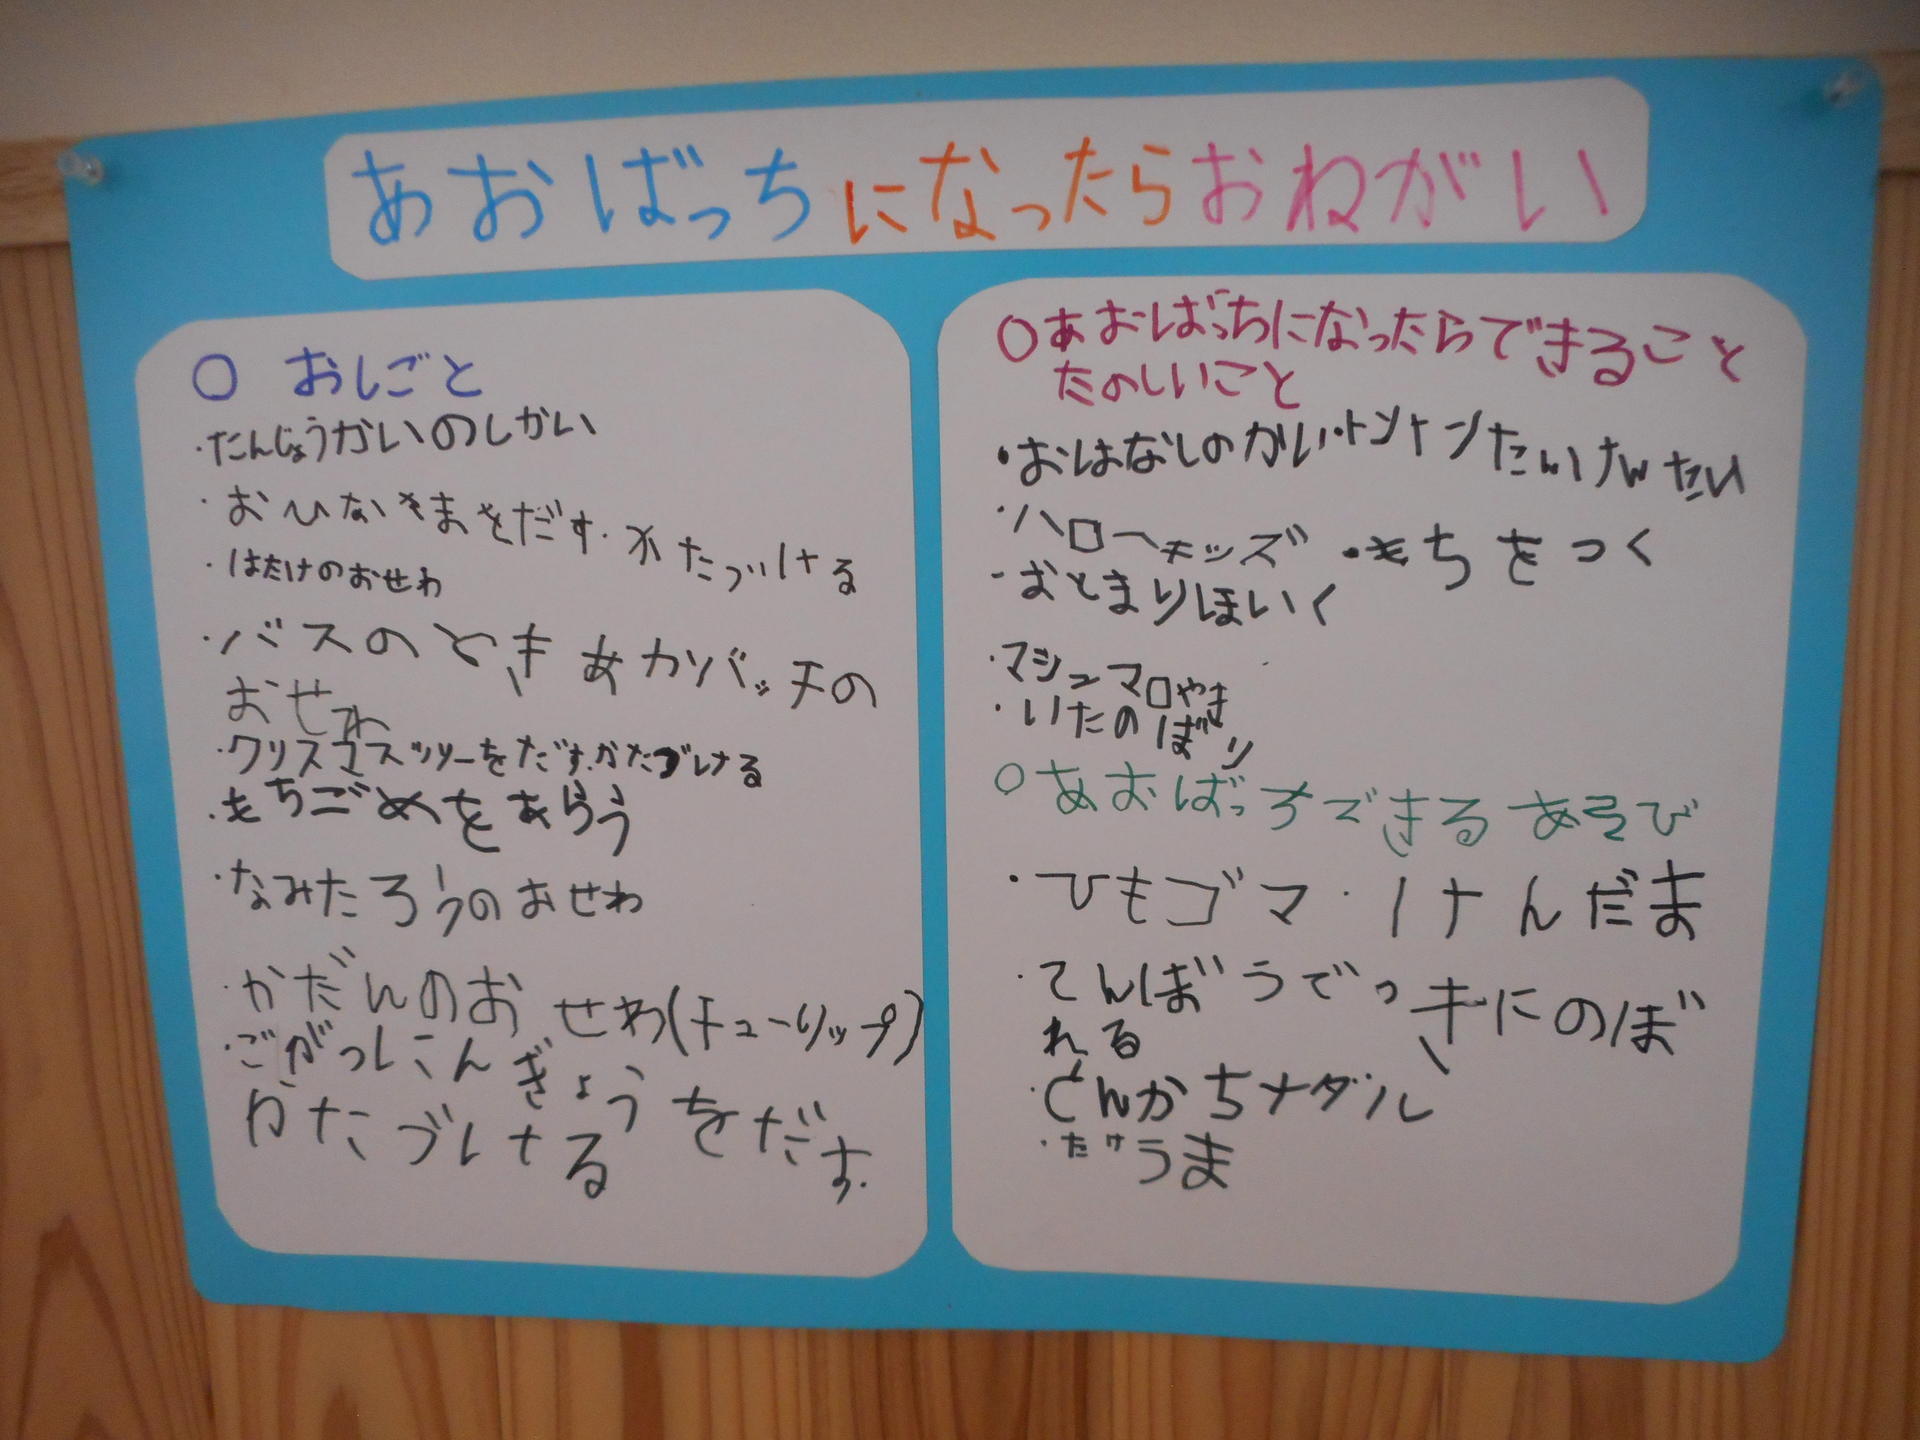 あおばっちになったらおねがい
○ おしごと
・たんじょうかいのしかい
・おひなさまをだす・かたづける
・はたけのおせわ
・バスのときあカバッチの
おせわ
・クリスマスツリーをだす.かたづける
・もちごめをあらう
・なみたろうのおせわ
・かだんのおせわ(チューリップ)
・ごがつにんぎょうをだす.
かたづける
○あおばっちになったらできること
たのしいこと
・おはなしのかい・トントンたいけんたい
・ハローキッズ ・もちをつく
・おとまりほいく
・マシュマロやき
・いたのぼり
○あおばっちできるあそび
・ひもゴマ・けんだま
・てんぼうでっきにのぼ
れる
・どんかちメダル
・たけうま